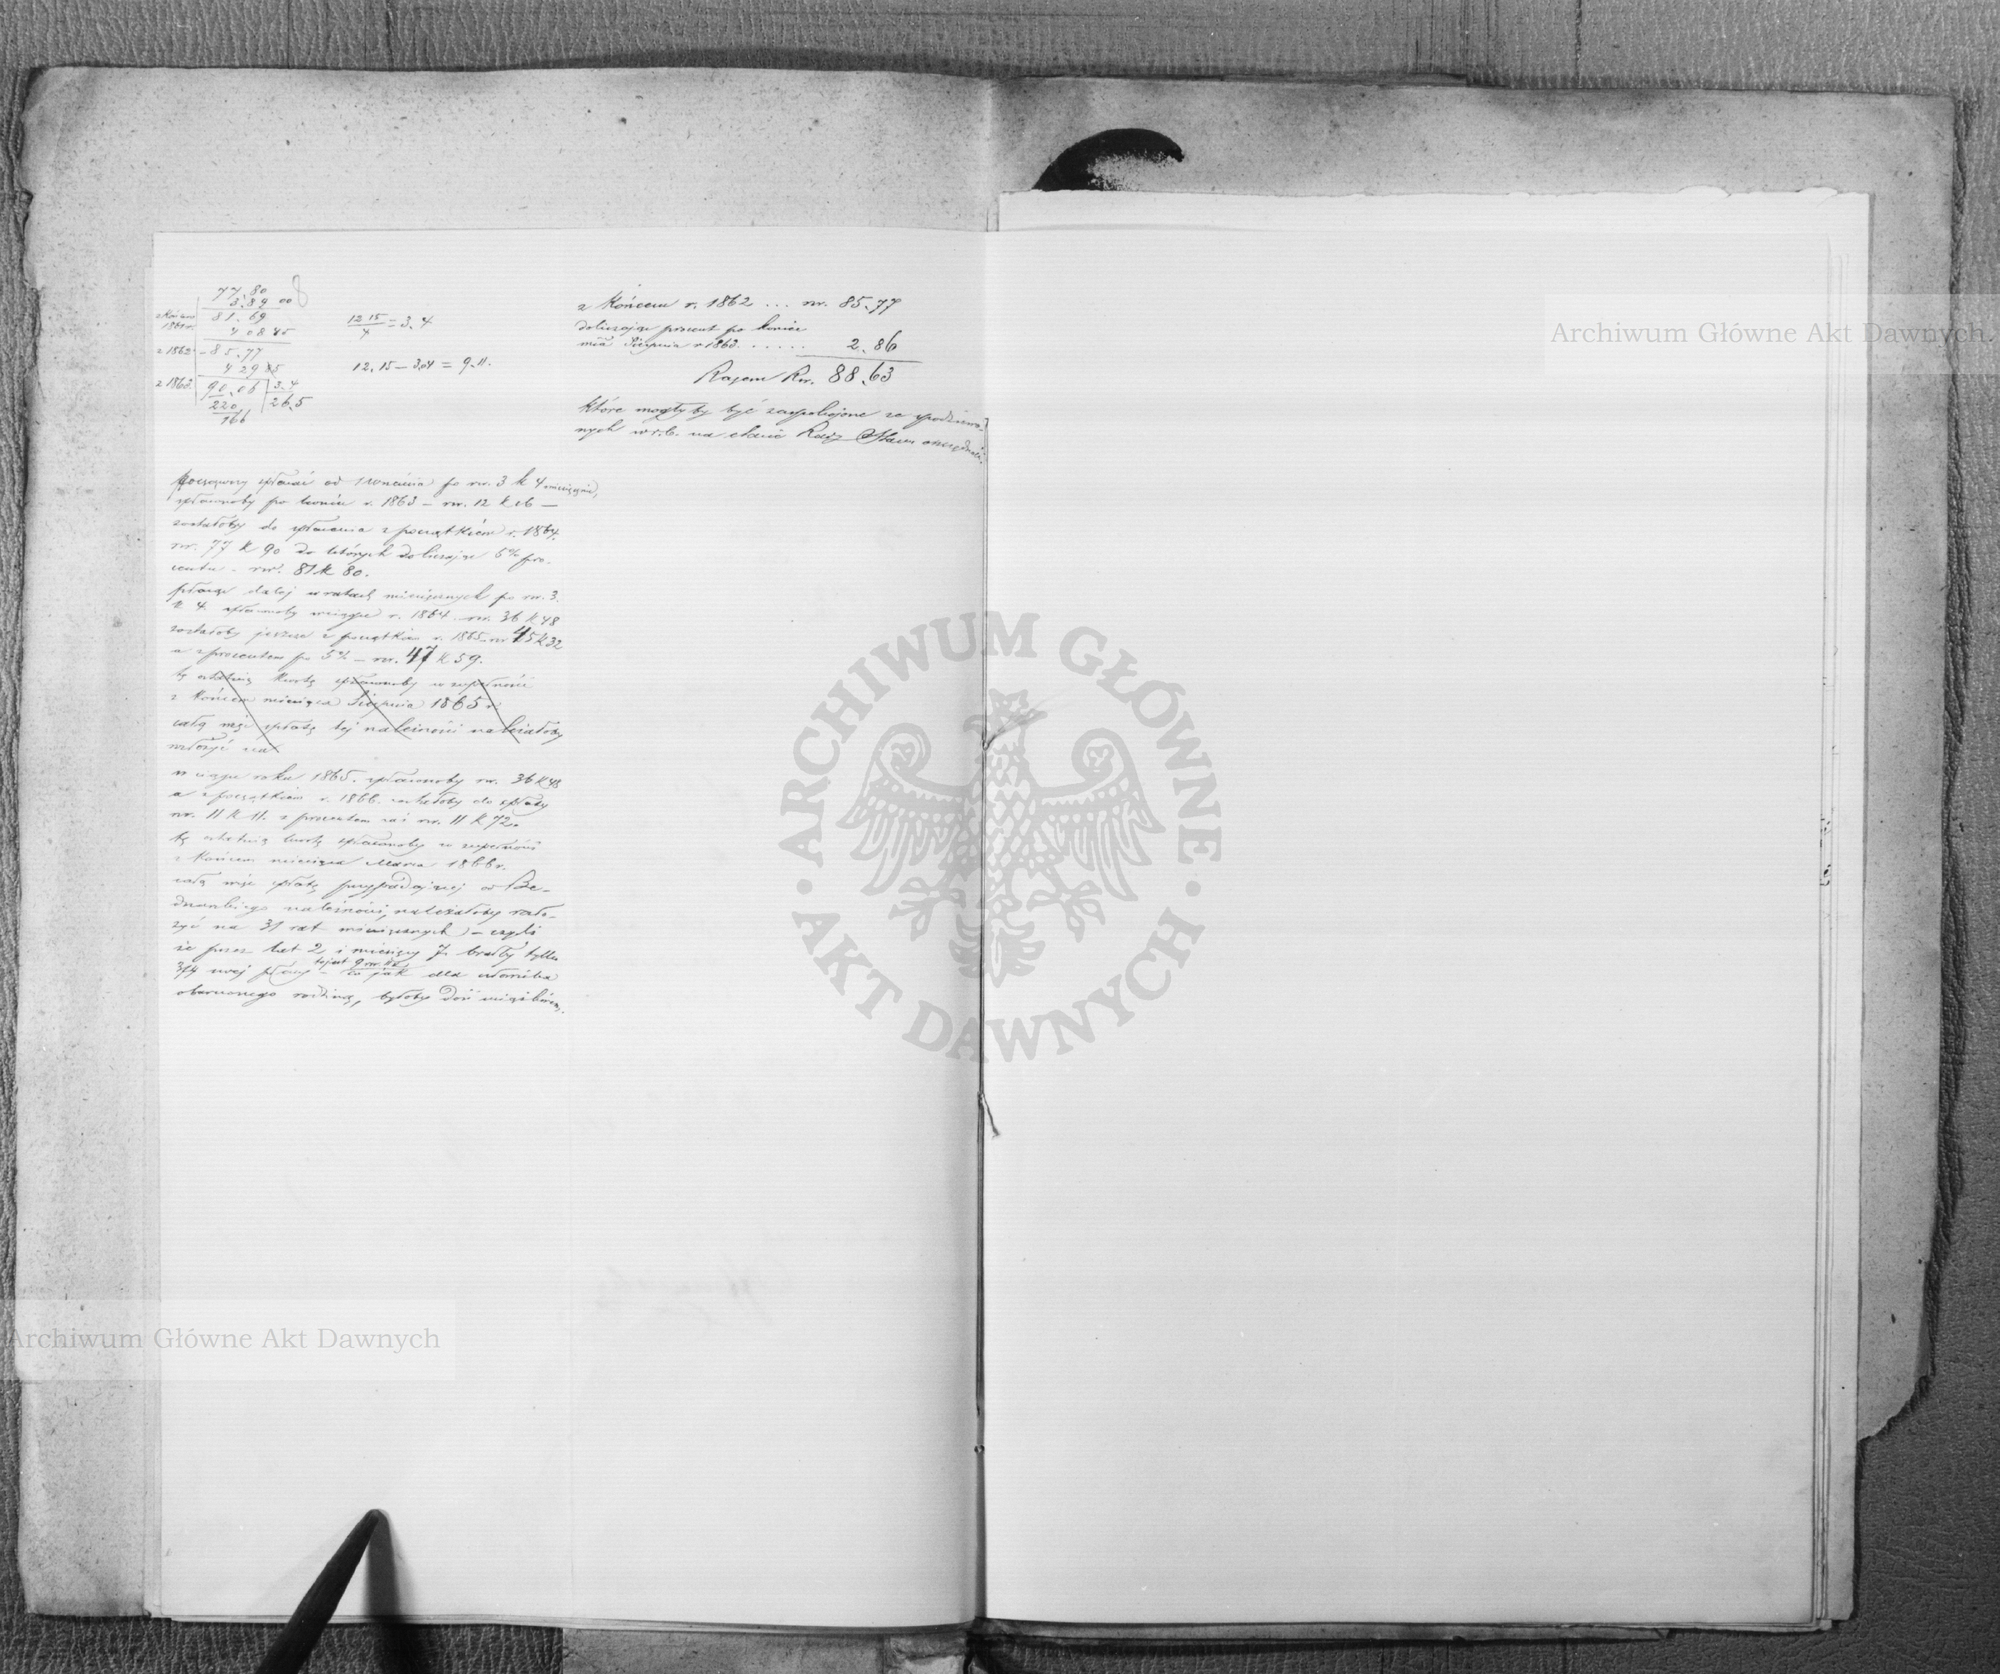 77.80
3.89 00
z Końcem 1861 r. 81.69
4 08 45
z 1862 - 85.77
4 29 85
z 1863. 90.06 | 3.4
220 | 26.5
166
8
12 15/4 = 3.4
12.15 - 3.04 = 9.11.
z Końcem r. 1862 ... rsr. 85.77
doliczając procent po koniec
mca Sierpnia r. 1863. ..... 2.86
Razem Rsr. 88.63
które mogłyby być zaspokojone ze spodziewa-
nych w r. b. na etacie
począwszy spłacać od Września po rsr. 3 k 4 miesięcznie,
spłaconoby po koniec r. 1863 — rsr. 12 k 16 —
zostałoby do spłacenia z początkiem r. 1864.
rsr. 77 k 90 do których doliczając 5% pro-
centu - rsr. 81 k 80.
płacąc dalej w ratach miesięcznych po rsr. 3.
k 4. spłaconoby w ciągu r. 1864 rsr. 36 k 48
zostałoby jeszcze z początkiem r. 1865 rsr 45 k 32
a z procentem po 5% — rsr. 47 k 59.
tę ostatnią kwotę spłaconoby w zupełności
z Końcem miesiąca Sierpnia 1865 r.
całą więc spłatę tej należności należałoby
rozłożyć na
w ciągu roku 1865. spłaconoby rsr. 36 k 48
a z początkiem r. 1866. zostałoby do spłaty
rsr. 11 k 11. z procentem zaś rsr. 11 k 72.
tę ostatnią kwotę spłaconoby w zupełności
z Końcem miesiąca Marca 1866 r.
całą więc spłatę przypadającej od Be-
dnarskiego należności, należałoby rozło-
żyć na 31 rat miesięcznych — czyli
że przez lat 2 i miesięcy 7. brałby tylko
3/4 swej płacy — to jest 9 rsr. 11 k co jak dla człowieka
obarczonego rodziną, byłoby dość uciążliwem.
ARCHIWUM GŁÓWNE
AKT DAWNYCH
Archiwum Główne Akt Dawnych.
Archiwum Główne Akt Dawnych